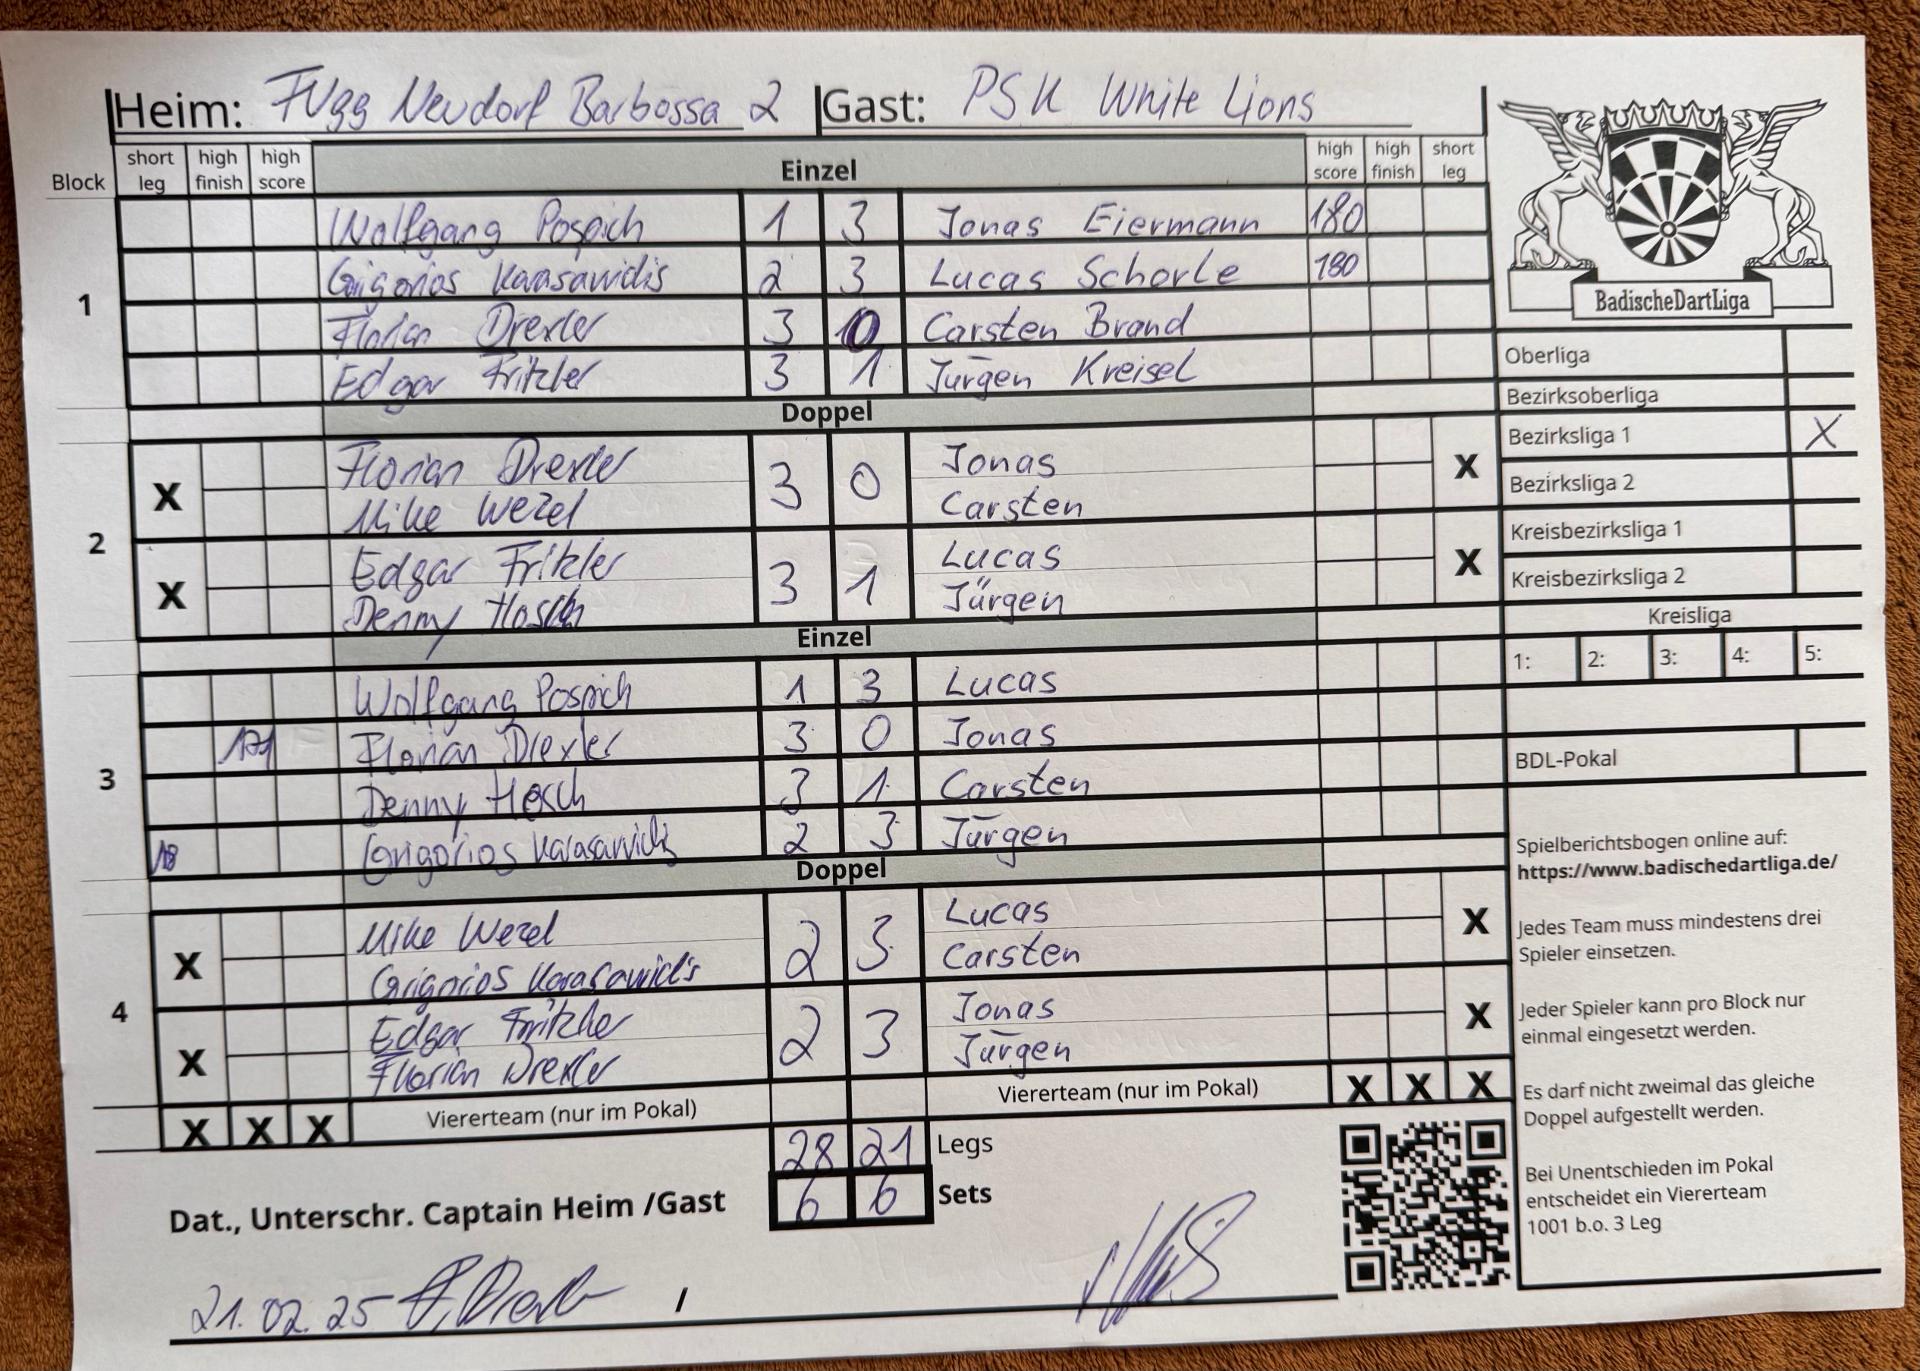 Heim: FVgg Neudorf Barbossa 2 Gast: PSK White Lions
Block short leg high finish high score Einzel high score high finish short leg
1
Wolfgang Pospich 1 3 Jonas Eiermann 180
Grigorios Karasavidis 2 3 Lucas Schorle 180
Florian Drexler 3 0 Carsten Brand
Edgar Fritzler 3 1 Jürgen Kreisel
Doppel
2
X Florian Drexler 3 0 Jonas X
Mike Wezel Carsten
X Edgar Fritzler 3 1 Lucas X
Denny Hosch Jürgen
Einzel
3
Wolfgang Pospich 1 3 Lucas
Florian Drexler 3 0 Jonas
Denny Hosch 3 1 Carsten
18 Grigorios Karasavidis 2 3 Jürgen
Doppel
4
X Mike Wezel 2 3 Lucas X
Grigorios Karasavidis Carsten
X Edgar Fritzler 2 3 Jonas X
Florian Drexler Jürgen
X X X Viererteam (nur im Pokal) Viererteam (nur im Pokal) X X X
28 21 Legs
6 6 Sets
Dat., Unterschr. Captain Heim /Gast
21.02.25 /
BadischeDartLiga
Oberliga
Bezirksoberliga
Bezirksliga 1 X
Bezirksliga 2
Kreisbezirksliga 1
Kreisbezirksliga 2
Kreisliga
1: 2: 3: 4: 5:
BDL-Pokal
Spielberichtsbogen online auf:
https://www.badischedartliga.de/
Jedes Team muss mindestens drei
Spieler einsetzen.
Jeder Spieler kann pro Block nur
einmal eingesetzt werden.
Es darf nicht zweimal das gleiche
Doppel aufgestellt werden.
Bei Unentschieden im Pokal
entscheidet ein Viererteam
1001 b.o. 3 Leg